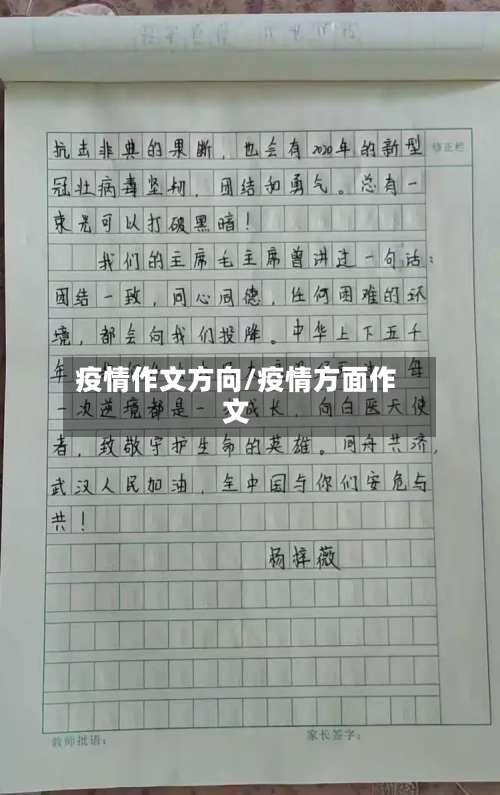 抗击非典的果断，也会有2020年的新型
修正栏
冠壮病毒坚韧，团结和勇气。总有一
束光可以打破黑暗！
我们的主席毛主席曾讲过一句话：
团结一致，同心同德，任何困难的环
境，都会向我们投降。中华上下五千
年
疫情作文方向/疫情方面作
文
每
一次逆境都是一 成长，向白医天使
者，致敬守护生命的英雄。同舟共济，
武汉人民加油，全中国与你们安危与
共！
杨梓薇
教师批语：
家长签字：